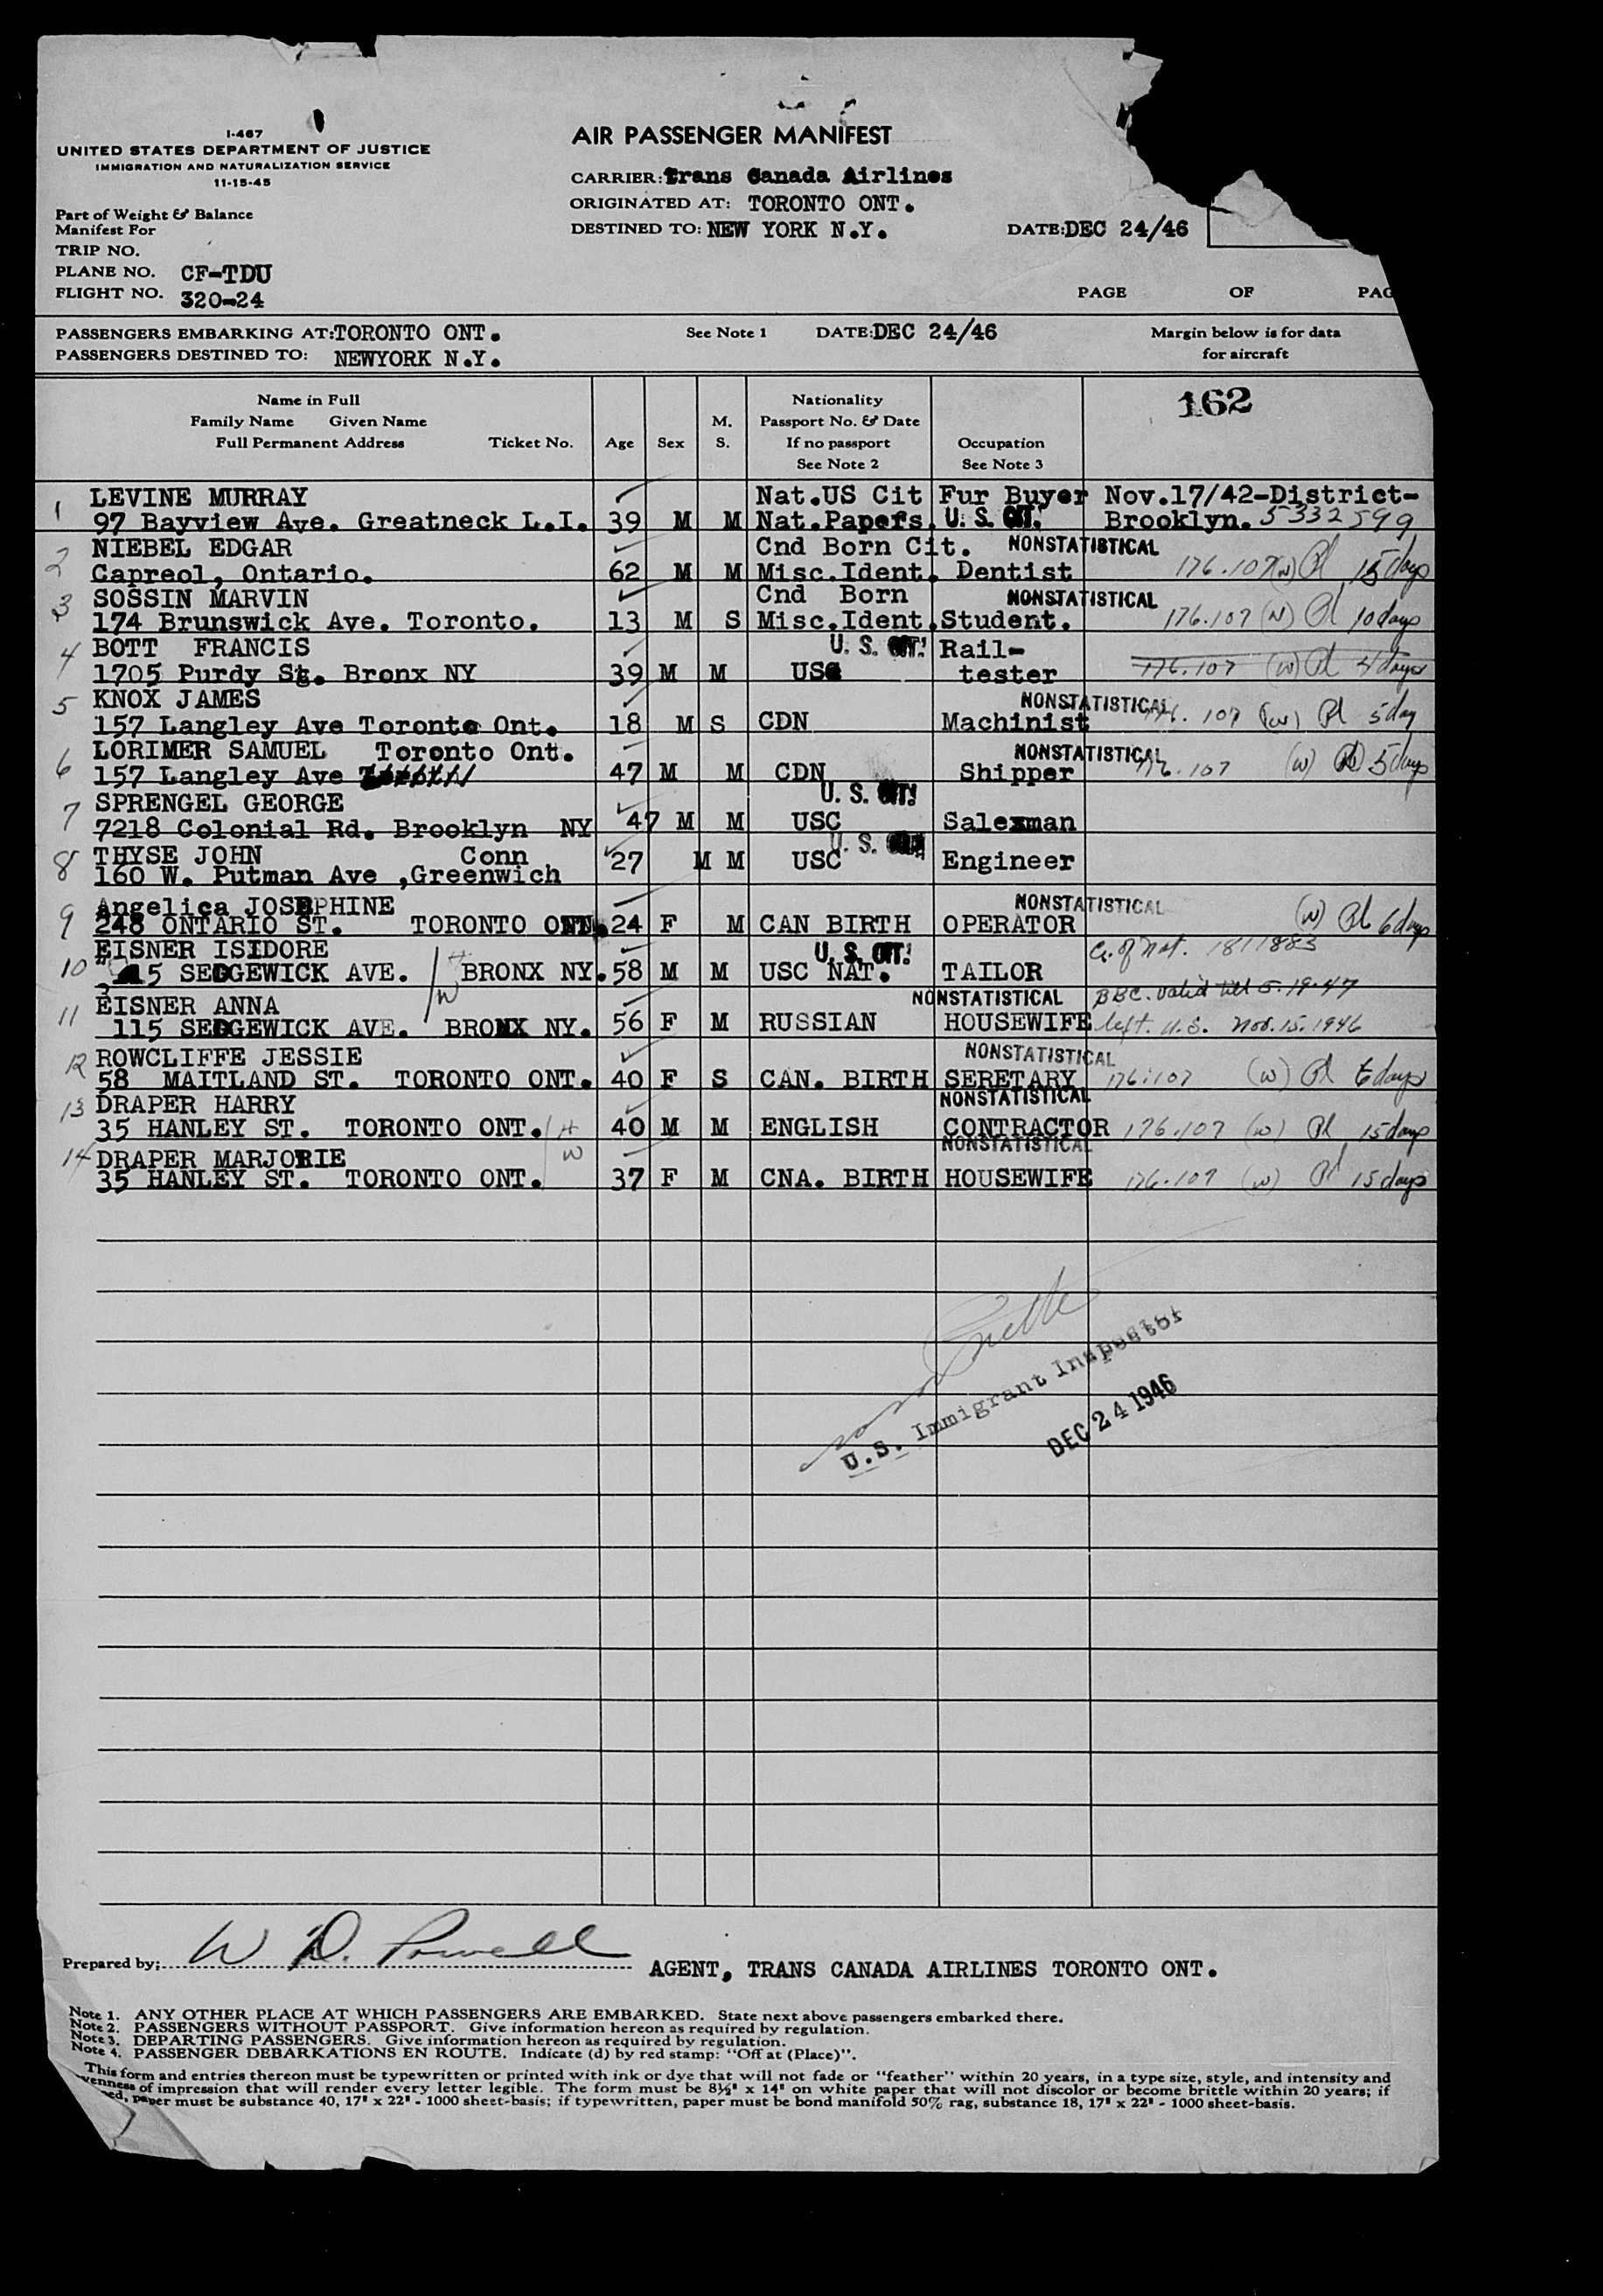 I-467
UNITED STATES DEPARTMENT OF JUSTICE
IMMIGRATION AND NATURALIZATION SERVICE
11-15-45
Part of Weight & Balance
Manifest For
TRIP NO.
PLANE NO. CF-TDU
FLIGHT NO. 320-24
AIR PASSENGER MANIFEST
CARRIER: Trans Canada Airlines
ORIGINATED AT: TORONTO ONT.
DESTINED TO: NEW YORK N.Y.
DATE: DEC 24/46
PAGE OF PAG
PASSENGERS EMBARKING AT: TORONTO ONT. See Note 1 DATE: DEC 24/46
PASSENGERS DESTINED TO: NEWYORK N.Y.
Margin below is for data
for aircraft
Name in Full
Family Name Given Name
Full Permanent Address Ticket No.
Age
Sex
M.
S.
Nationality
Passport No. & Date
If no passport
See Note 2
Occupation
See Note 3
162
1 LEVINE MURRAY Nat.US Cit Fur Buyer Nov.17/42-District-
97 Bayview Ave. Greatneck L.I. 39 M M Nat.Papers. U. S. CIT. Brooklyn. 5332599
2 NIEBEL EDGAR Cnd Born Cit. NONSTATISTICAL
Capreol, Ontario. 62 M M Misc.Ident. Dentist 176.107 (W) Pl 15 days
3 SOSSIN MARVIN Cnd Born NONSTATISTICAL
174 Brunswick Ave. Toronto. 13 M S Misc.Ident. Student. 176.107 (W) Pl 10 days
4 BOTT FRANCIS U. S. CIT. Rail-
1705 Purdy St. Bronx NY 39 M M USC tester 176.107 (W) Pl 4 days
5 KNOX JAMES NONSTATISTICAL
157 Langley Ave Toronto Ont. 18 M S CDN Machinist 176.107 (W) Pl 5 day
6 LORIMER SAMUEL Toronto Ont. NONSTATISTICAL
157 Langley Ave 47 M M CDN Shipper 176.107 (W) Pl 5 days
7 SPRENGEL GEORGE U. S. CIT.
7218 Colonial Rd. Brooklyn NY 47 M M USC Salexman
8 THYSE JOHN Conn U. S. CIT.
160 W. Putman Ave ,Greenwich 27 M M USC Engineer
9 Angelica JOSEPHINE NONSTATISTICAL
248 ONTARIO ST. TORONTO ONT. 24 F M CAN BIRTH OPERATOR (W) Pl 6 days
10 EISNER ISIDORE U. S. CIT. C. of Nat. 1811883
5 SEDGEWICK AVE. H BRONX NY. 58 M M USC NAT. TAILOR
11 EISNER ANNA W NONSTATISTICAL BBC. valid till 5.19.47
115 SEDGEWICK AVE. BRONX NY. 56 F M RUSSIAN HOUSEWIFE left. U.S. Nov.15.1946
12 ROWCLIFFE JESSIE NONSTATISTICAL
58 MAITLAND ST. TORONTO ONT. 40 F S CAN. BIRTH SERETARY 176.107 (W) Pl 6 days
13 DRAPER HARRY NONSTATISTICAL
35 HANLEY ST. TORONTO ONT. H 40 M M ENGLISH CONTRACTOR 176.107 (W) Pl 15 days
14 DRAPER MARJORIE W NONSTATISTICAL
35 HANLEY ST. TORONTO ONT. 37 F M CNA. BIRTH HOUSEWIFE 176.107 (W) Pl 15 days
U.S. Immigrant Inspector
DEC 24 1946
Prepared by: W D. Powell AGENT, TRANS CANADA AIRLINES TORONTO ONT.
Note 1. ANY OTHER PLACE AT WHICH PASSENGERS ARE EMBARKED. State next above passengers embarked there.
Note 2. PASSENGERS WITHOUT PASSPORT. Give information hereon as required by regulation.
Note 3. DEPARTING PASSENGERS. Give information hereon as required by regulation.
Note 4. PASSENGER DEBARKATIONS EN ROUTE. Indicate (d) by red stamp: "Off at (Place)".
This form and entries thereon must be typewritten or printed with ink or dye that will not fade or "feather" within 20 years, in a type size, style, and intensity and
of impression that will render every letter legible. The form must be 8½" x 14" on white paper that will not discolor or become brittle within 20 years; if
paper must be substance 40, 17" x 22" - 1000 sheet-basis; if typewritten, paper must be bond manifold 50% rag, substance 18, 17" x 22" - 1000 sheet-basis.